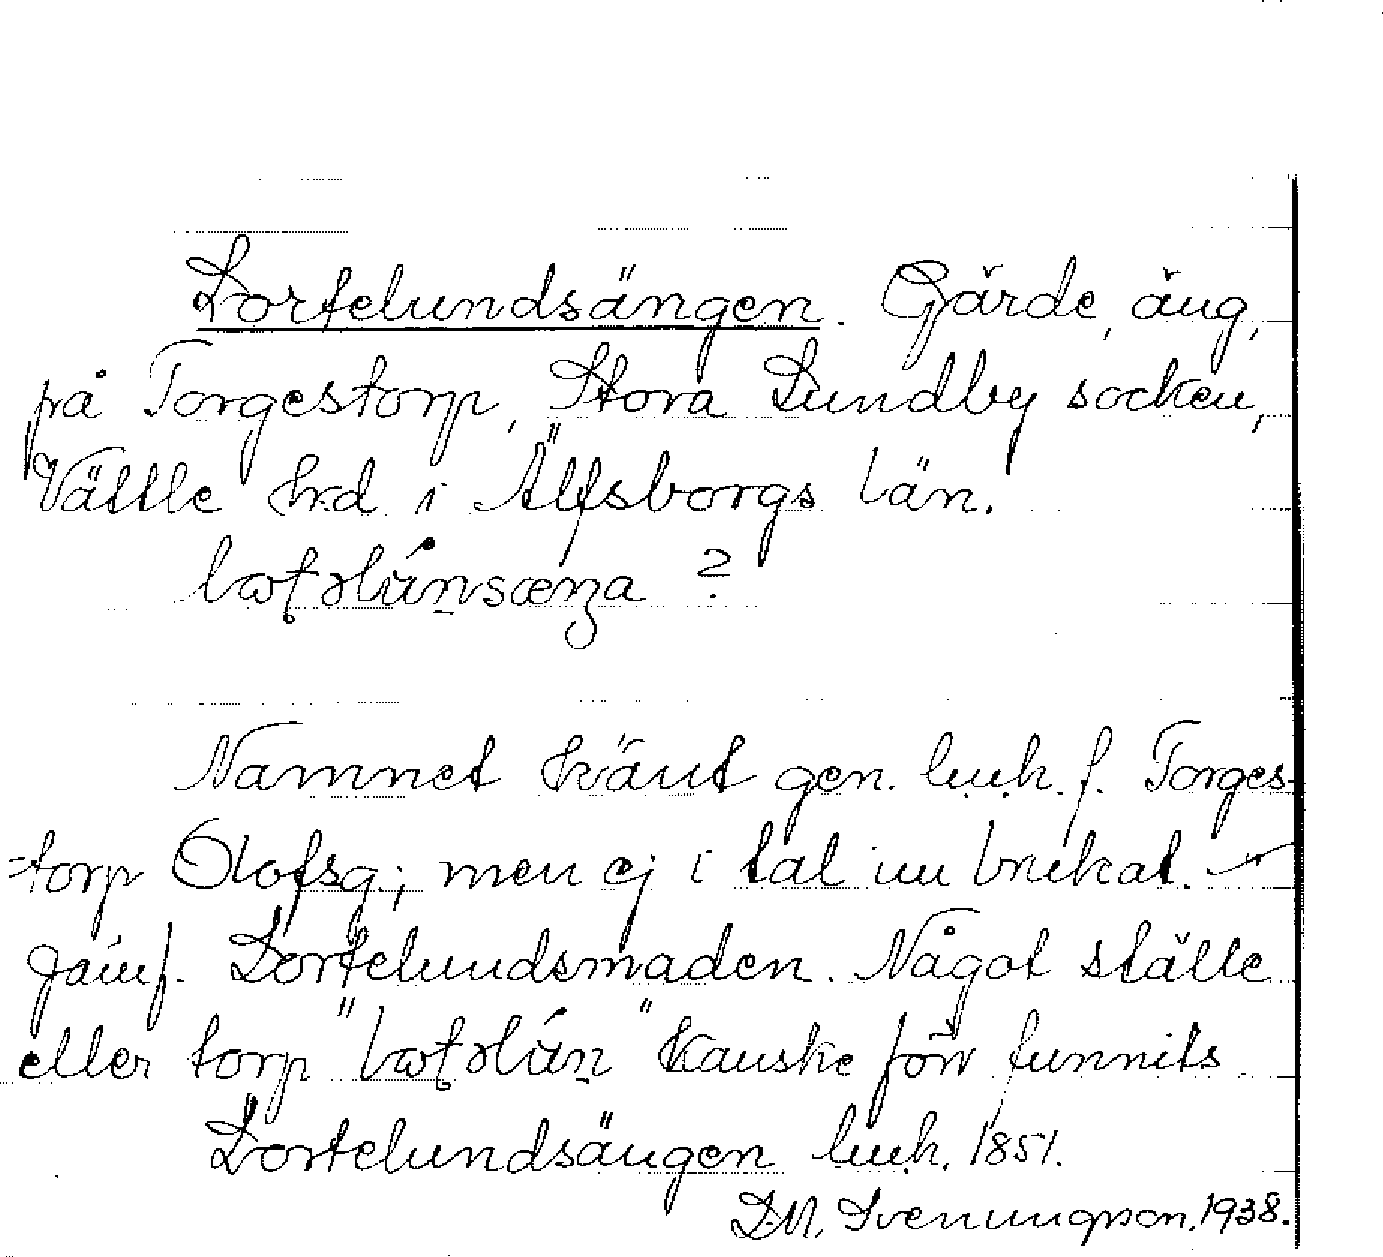 Lortelundsängen. Gärde, äng,
på Torgestorp, Stora Lundby socken,
Vättle hrd i Älfsborgs län.
Namnet känt gen. lmh. f. Torges-
-torp Olofsg.; men ej i tal nu brukat. –
Jämf. Lortelundsmaden. Något ställe
eller torp " " kanske förr funnits.
Lortelundsängen lmh. 1851.
D.M. Svenungsson, 1938.